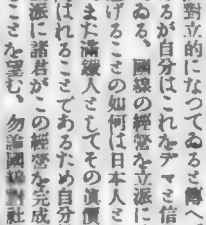 對立的になつてゐると傳へ
るが自分はこれをデマと信
ゐる、國線の經營を立派に
げることの如何は日本人と
また滿鐵人としてその眞價
はれることであるため自分
派に諸君がこの經營を完成
ことを望む、勿論國線對社